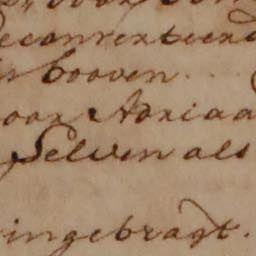 econventeerd
booven....
oor Adriaa
Selven als
ingebragt.